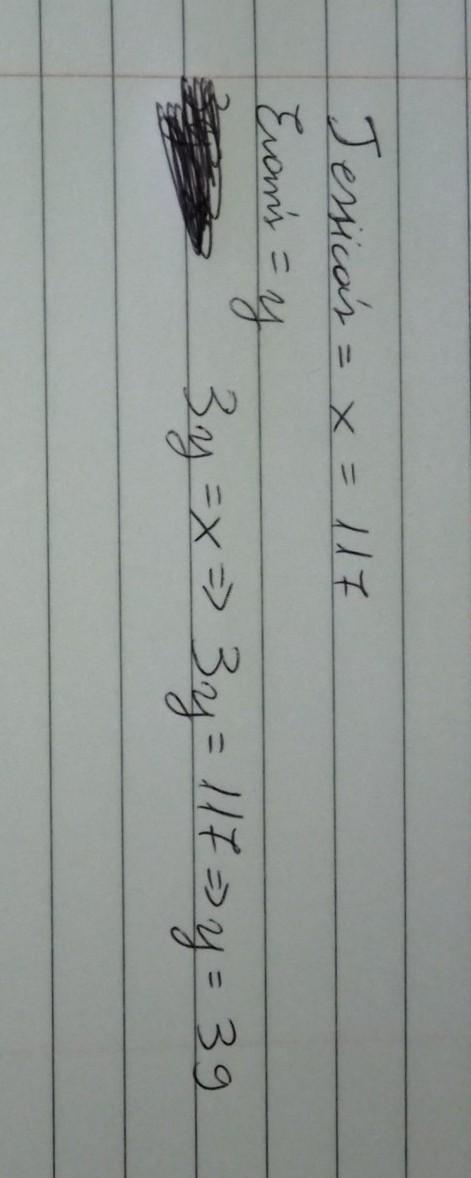 Jessica's = x = 117
Evan's = y
3y = x ⇒ 3y = 117 ⇒ y = 39